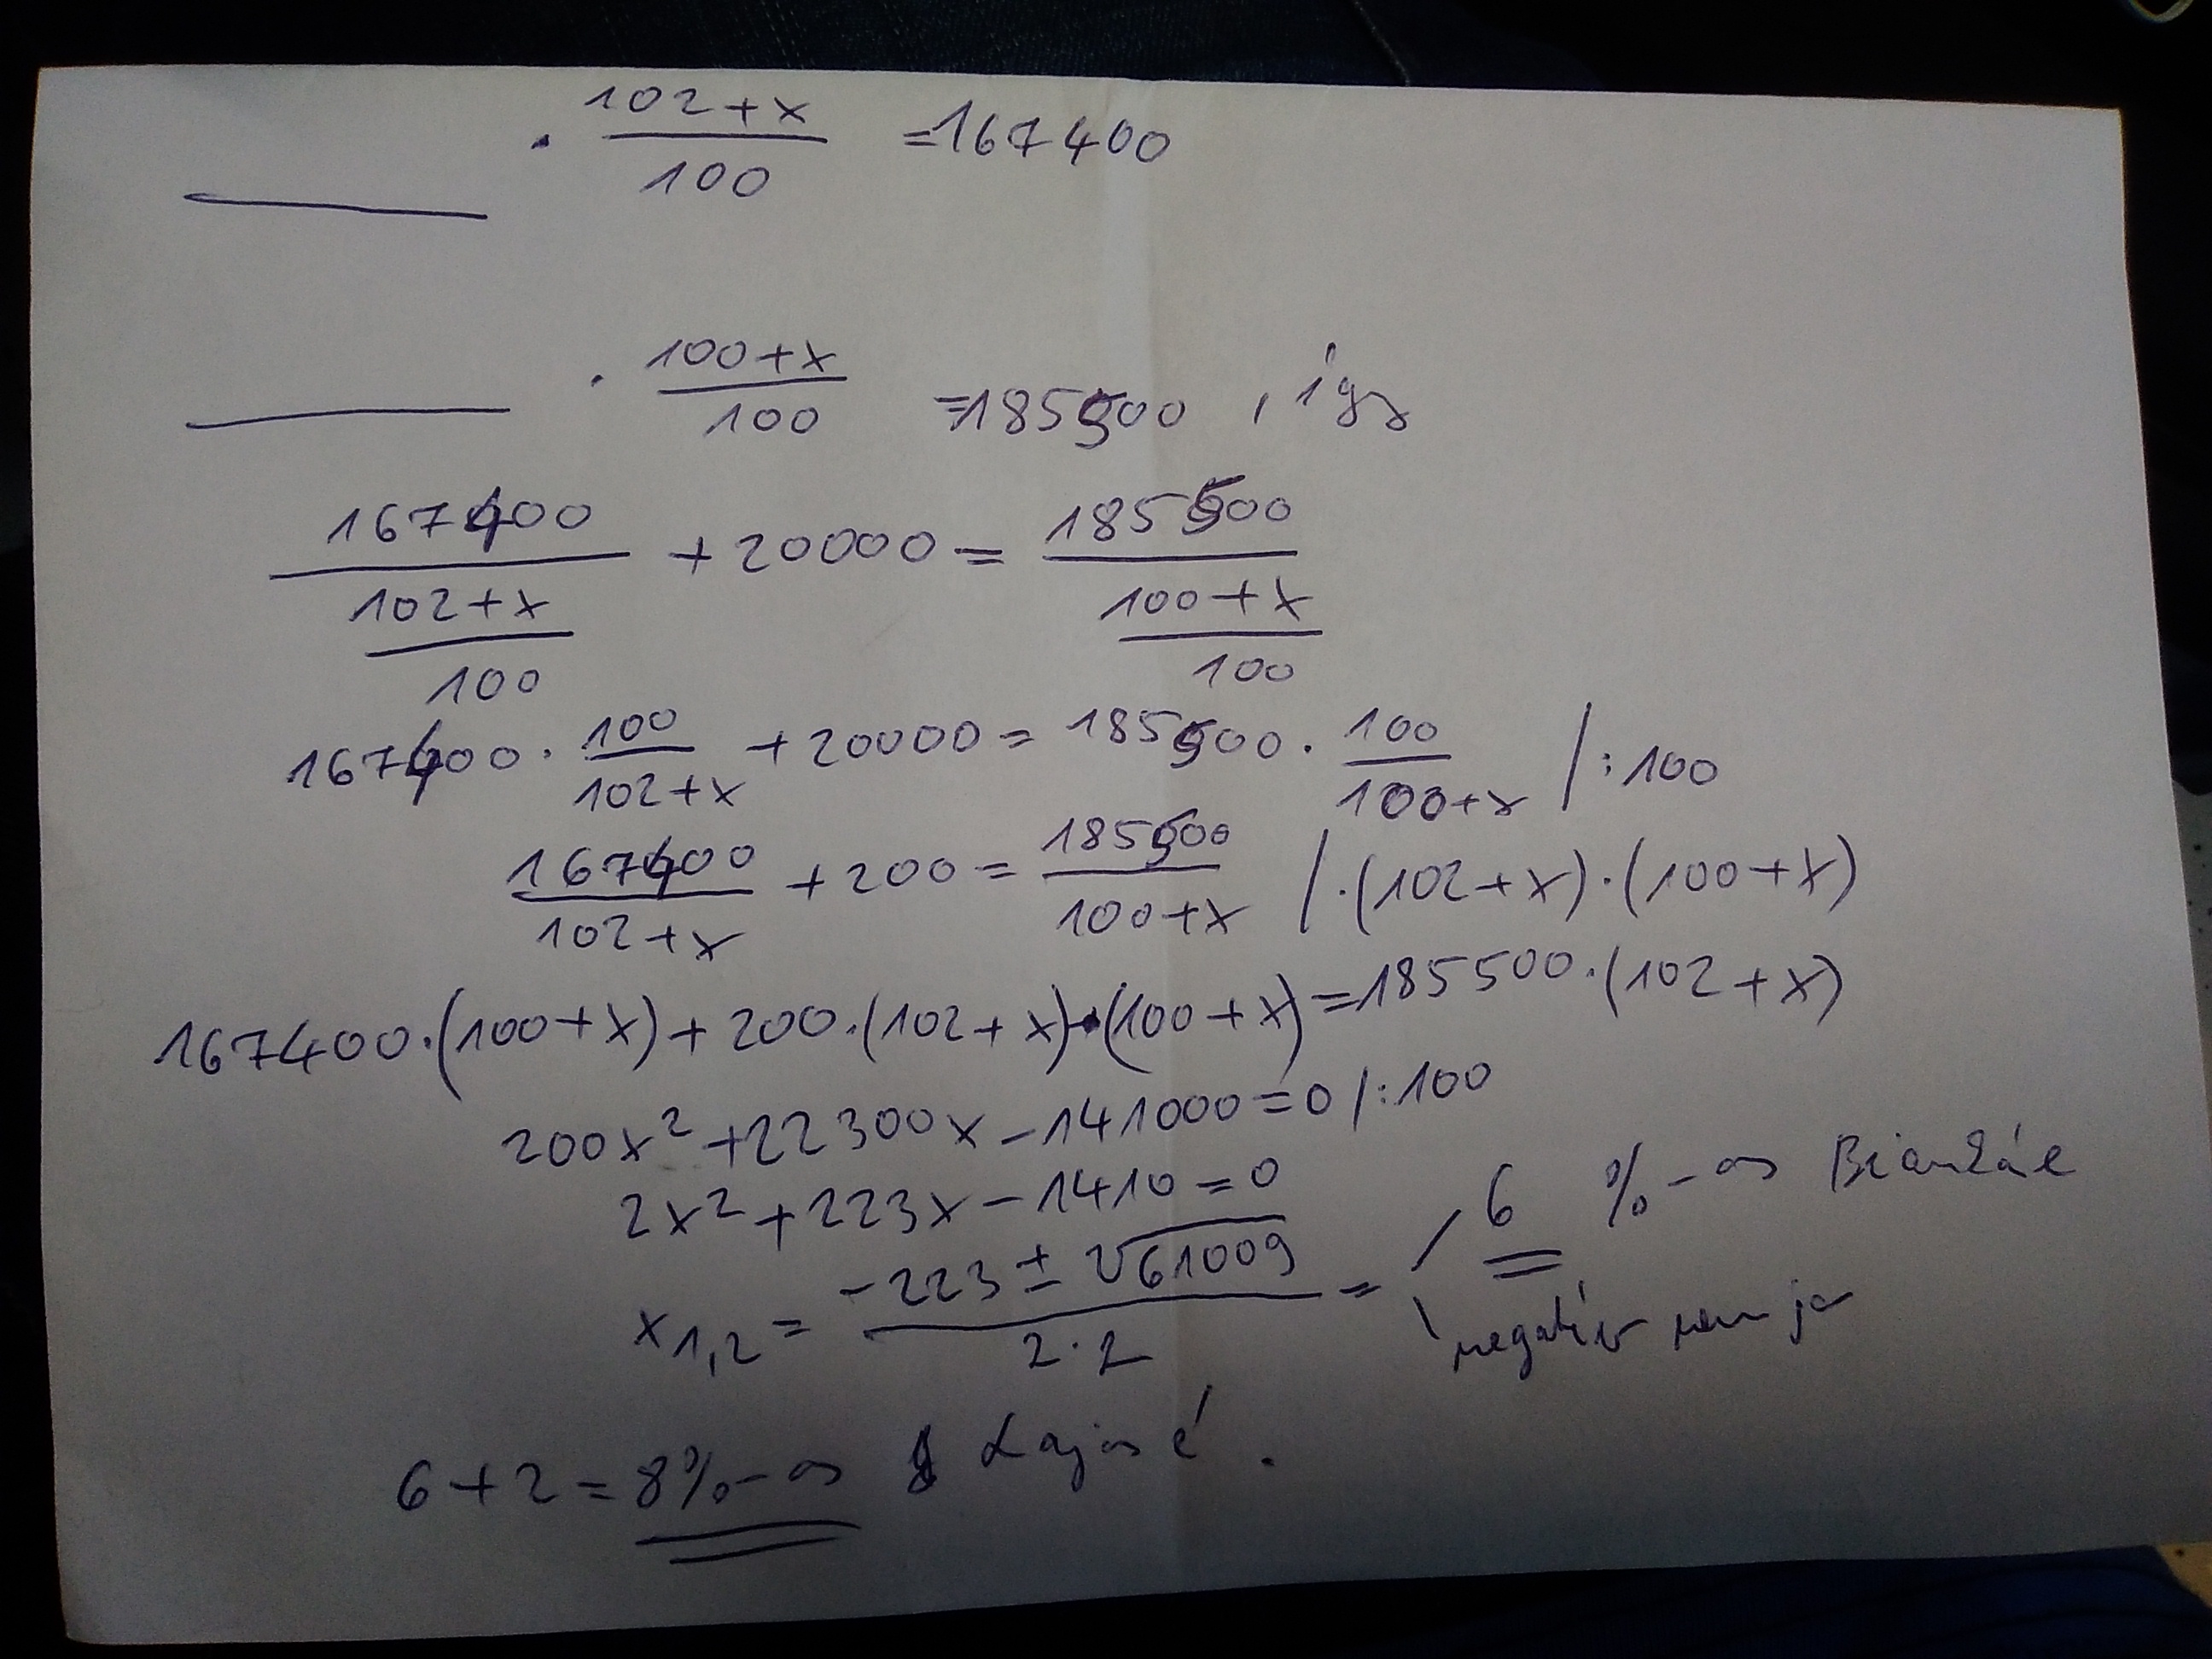 _____ · (102+x)/100 =167400
_____ · (100+x)/100 =185500 , így
167400/((102+x)/100) +20000= 185500/((100+x)/100)
167400 · 100/(102+x) +20000= 185500 · 100/(100+x) /:100
167400/(102+x) +200= 185500/(100+x) /·(102+x)·(100+x)
167400·(100+x)+200·(102+x)·(100+x)=185500·(102+x)
200x²+22300x-141000=0/:100
2x²+223x-1410=0
x1,2= (-223±√61009)/(2·2) = 6 %-os Biankáé
negatív nem jó
6+2=8%-os Lajosé.